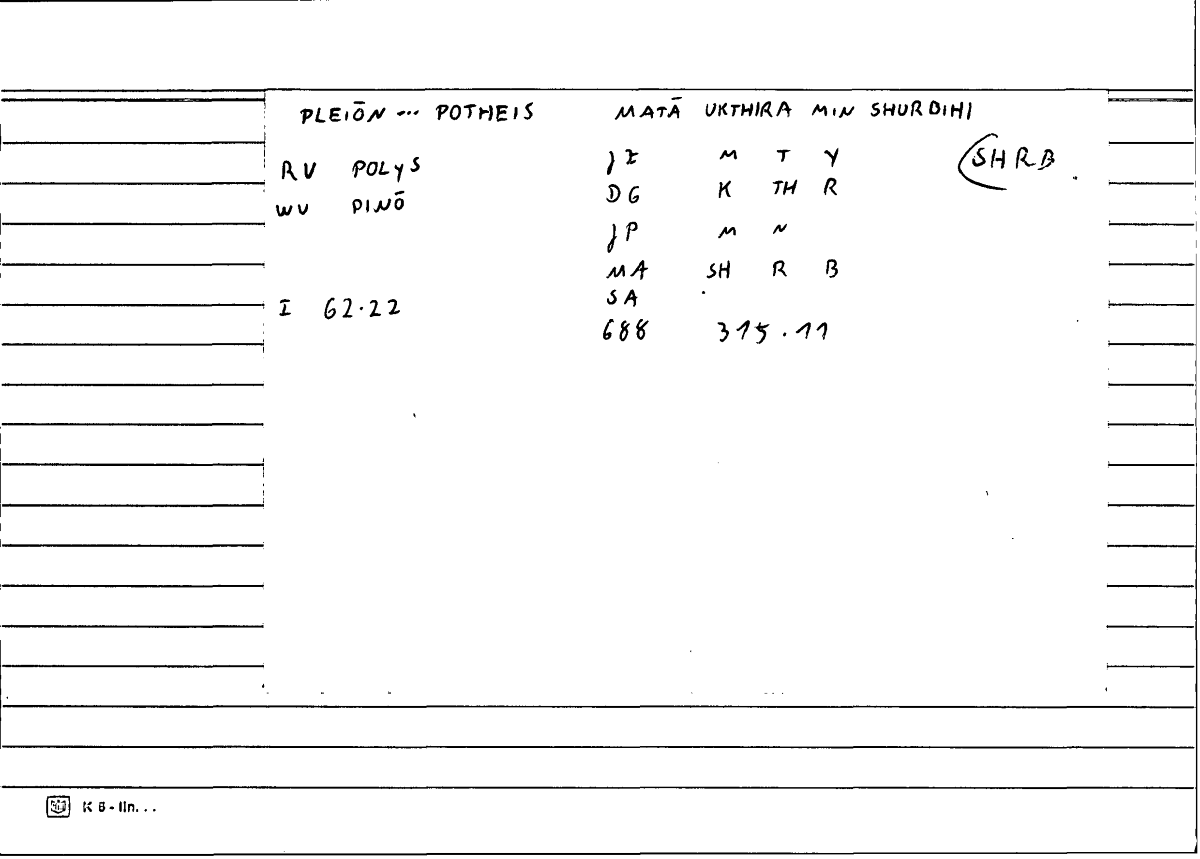 PLEIŌN ... POTHEIS MATĀ UKTHIRA MIN SHURBIHI
RV POLYS JI M T Y (SHRB
WV PINŌ DG K TH R
JP M N
MA SH R B
I 62.22 SA
688 315.11
K 6 - lin...